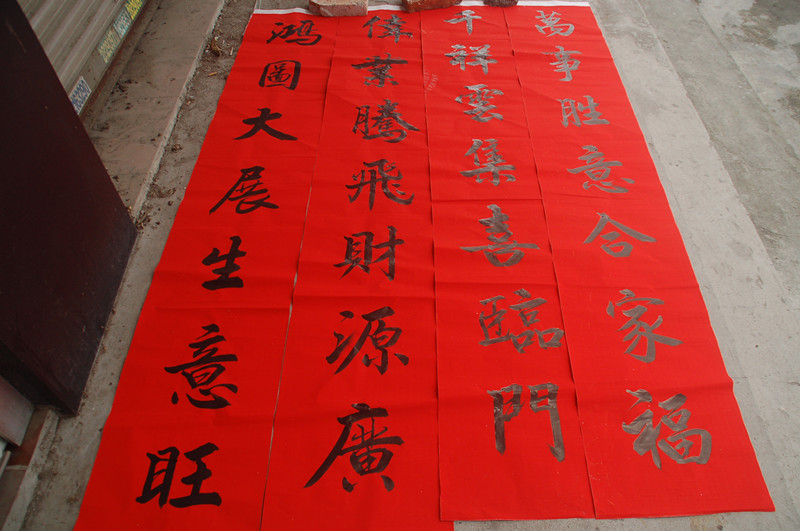 萬事胜意合家福
千祥雲集喜臨門
偉業騰飛財源廣
鴻圖大展生意旺